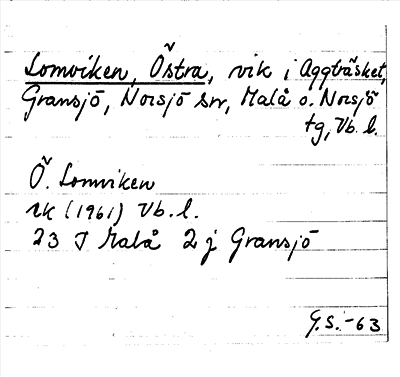 Lomviken, Östra, vik i Aggträsket,
Gransjö, Norsjö sn, Malå o. Norsjö
tg, Vb. l.
Ö. Lomviken
ek (1961) Vb. l.
23 J Malå 2 j Gransjö
G.S. -63